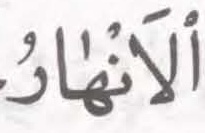 اَلْاَنْهٰارُ